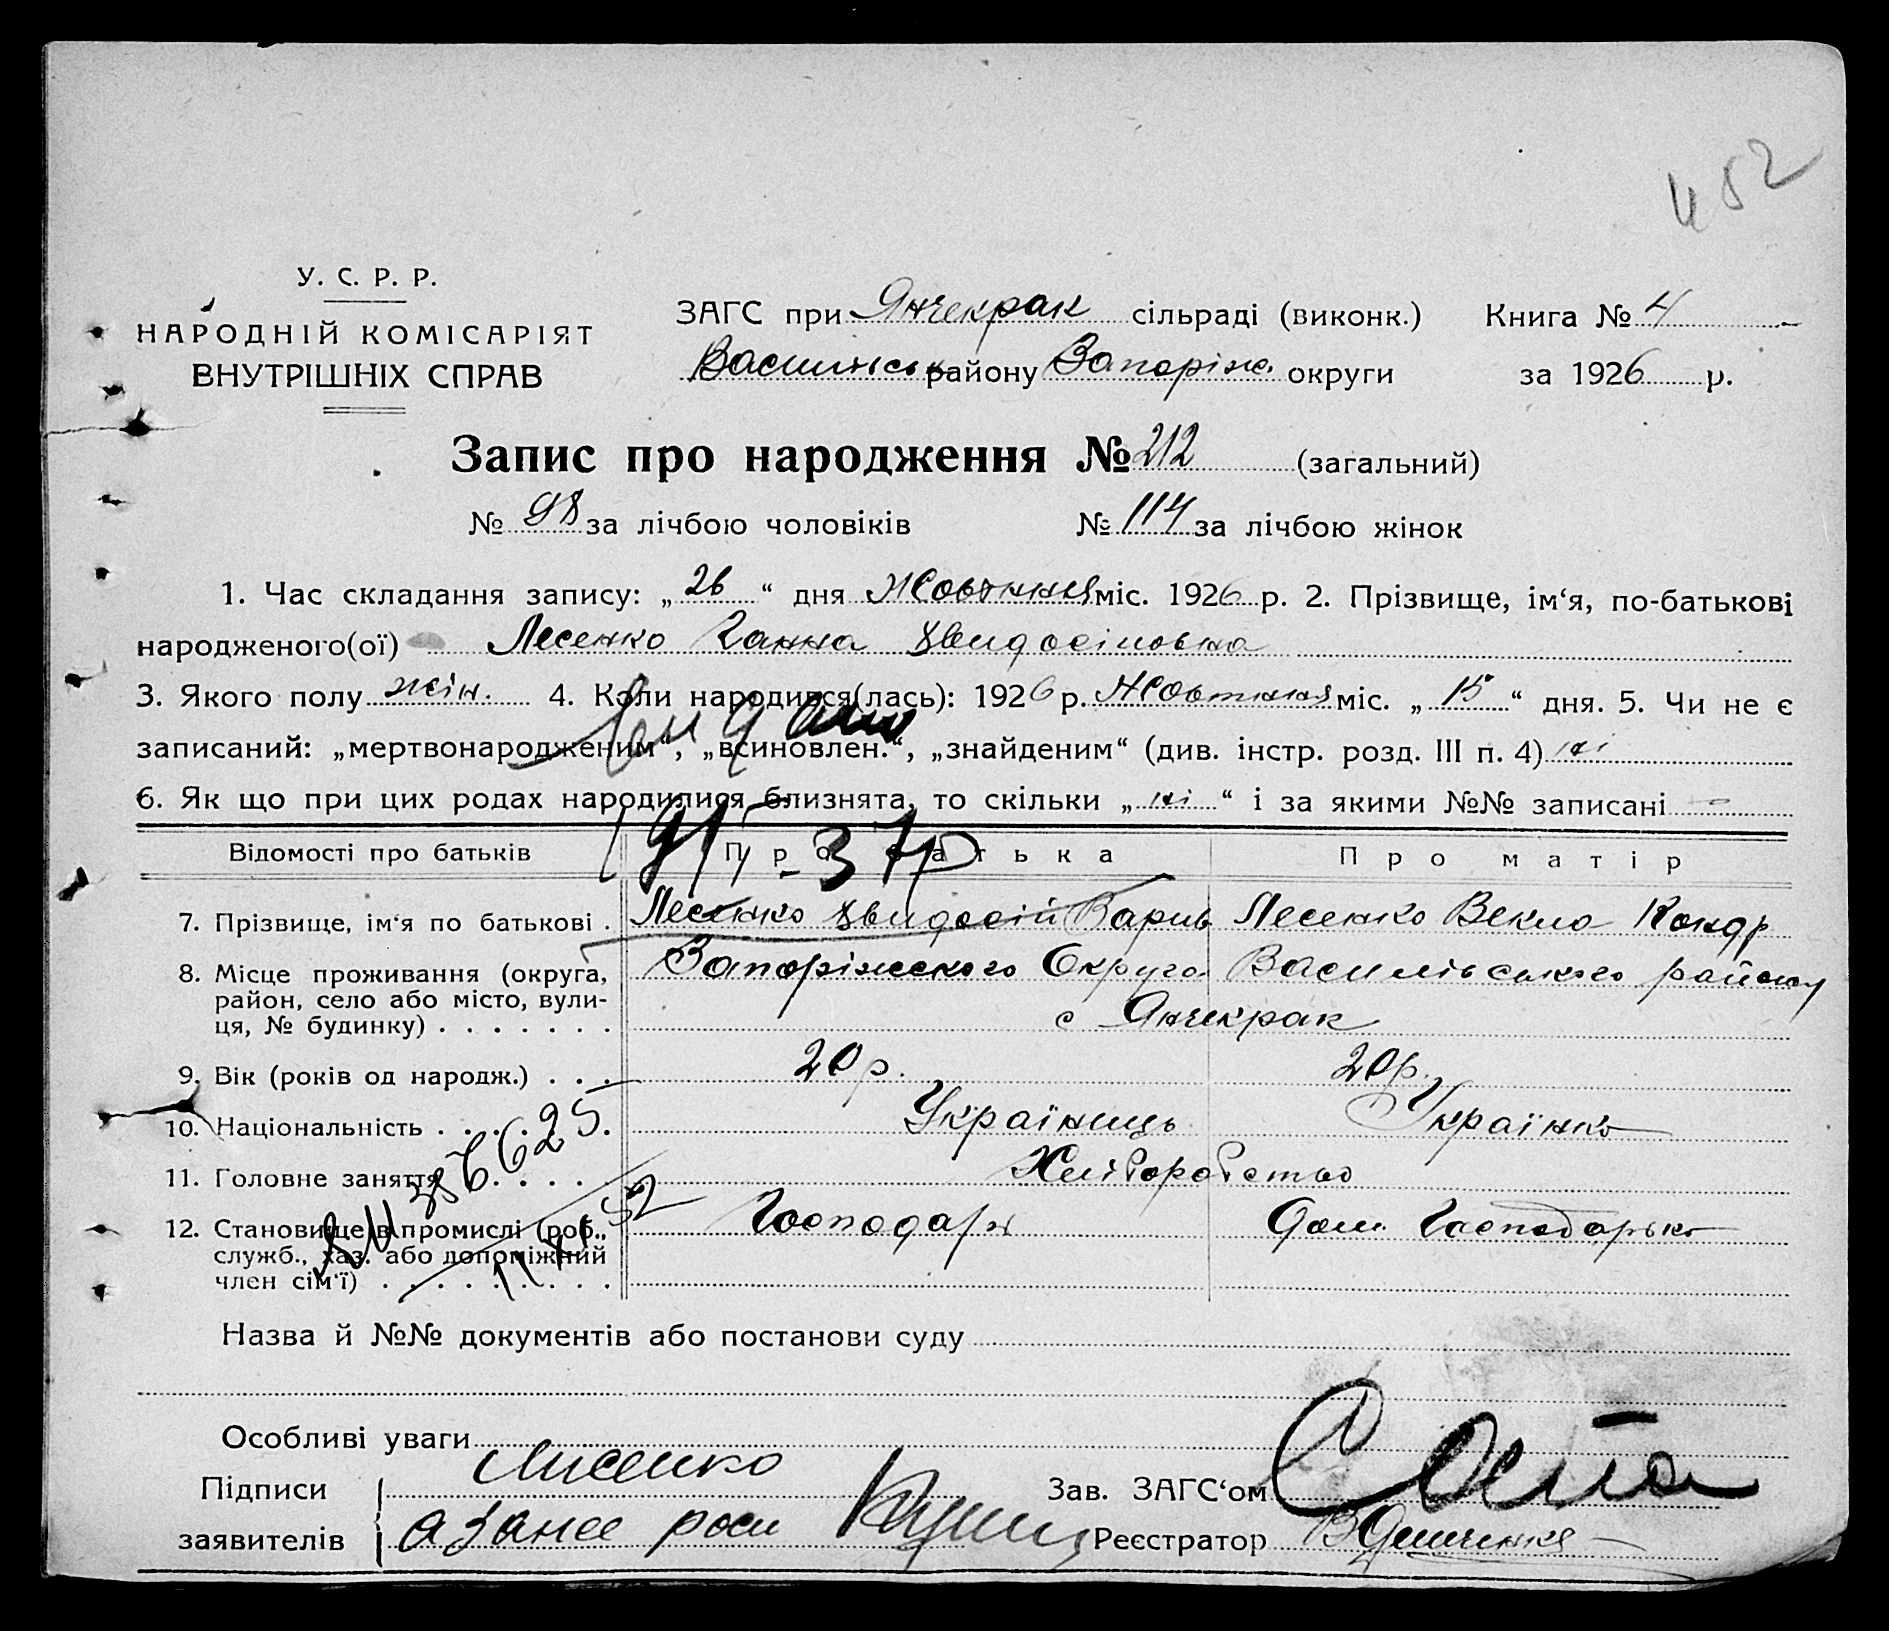 452
У. С. Р. Р.
НАРОДНІЙ КОМІСАРІЯТ
ВНУТРІШНІХ СПРАВ
ЗАГС при Янчекрак сільраді (виконк.) Книга № 4
району Запоріж. округи за 1926 р.
Запис про народження № 212 (загальний)
№ 98 за лічбою чоловіків № 114 за лічбою жінок
1. Час складання запису: „ 26 “ дня Жовтння міс. 1926 р. 2. Прізвище, ім‘я, по-батькові
народженого(ої) Лесенко Ганна
3. Якого полу жін. 4. Коли народився(лась): 1926 р. Жовтння міс. „ 15 “ дня. 5. Чи не є
записаний: „мертвонародженим“, „всиновлен.“, „знайденим“ (див. інстр. розд. III п. 4) ні
6. Як що при цих родах народилися близнята, то скільки „ ні “ і за якими №№ записані —
Відомості про батьків Про батька Про матір
7. Прізвище, ім‘я по батькові . Лесенко Лесенко Векла Кондр
8. Місце проживання (округа, район, село або місто, вулиця, № будинку) Запоріжского Округа Васильівського району
с Янчекрак
9. Вік (років од народж.) . . . 20р. 20р.
10. Національність . . . . . . Українець Українка
11. Головне заняття . . . . . Хліборобство
12. Становище в промислі (роб., служб., хаз. або допоміжний член сім‘ї) Господарь Дом. Господарька
Назва й №№ документів або постанови суду
Особливі уваги
Підписи Лисенко Зав. ЗАГС‘ом
заявителів Реєстратор